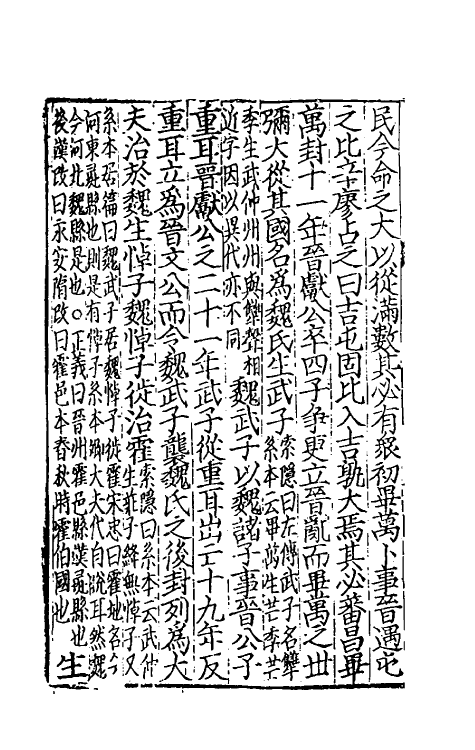 民今命之大以從滿數其必有衆初畢萬卜事晉遇屯
之比辛廖占之曰吉屯固比入吉孰大焉其必蕃昌畢
萬封十一年晉獻公卒四子爭更立晉亂而畢萬之世
彌大從其國名爲魏氏生武子
索隱曰左傳武子名犨
系本云畢萬生芒季芒
季生武仲州州與犨聲相
近字因以異代亦不同
魏武子以魏諸子事晉公子
重耳晉獻公之二十一年武子從重耳出亡十九年反
重耳立爲晉文公而令魏武子襲魏氏之後封列爲大
夫治於魏生悼子魏悼子徙治霍
索隱曰系本云武仲
生莊子絳無悼子又
系本居篇曰魏武子居魏悼子徙霍宋忠曰霍地名今
河東彘縣也則是有悼子系本卿大夫代自脫耳然魏
今河北魏縣是也○正義曰晉州霍邑縣漢彘縣也
後漢改曰永安隋改曰霍邑本春秋時霍伯國也
生